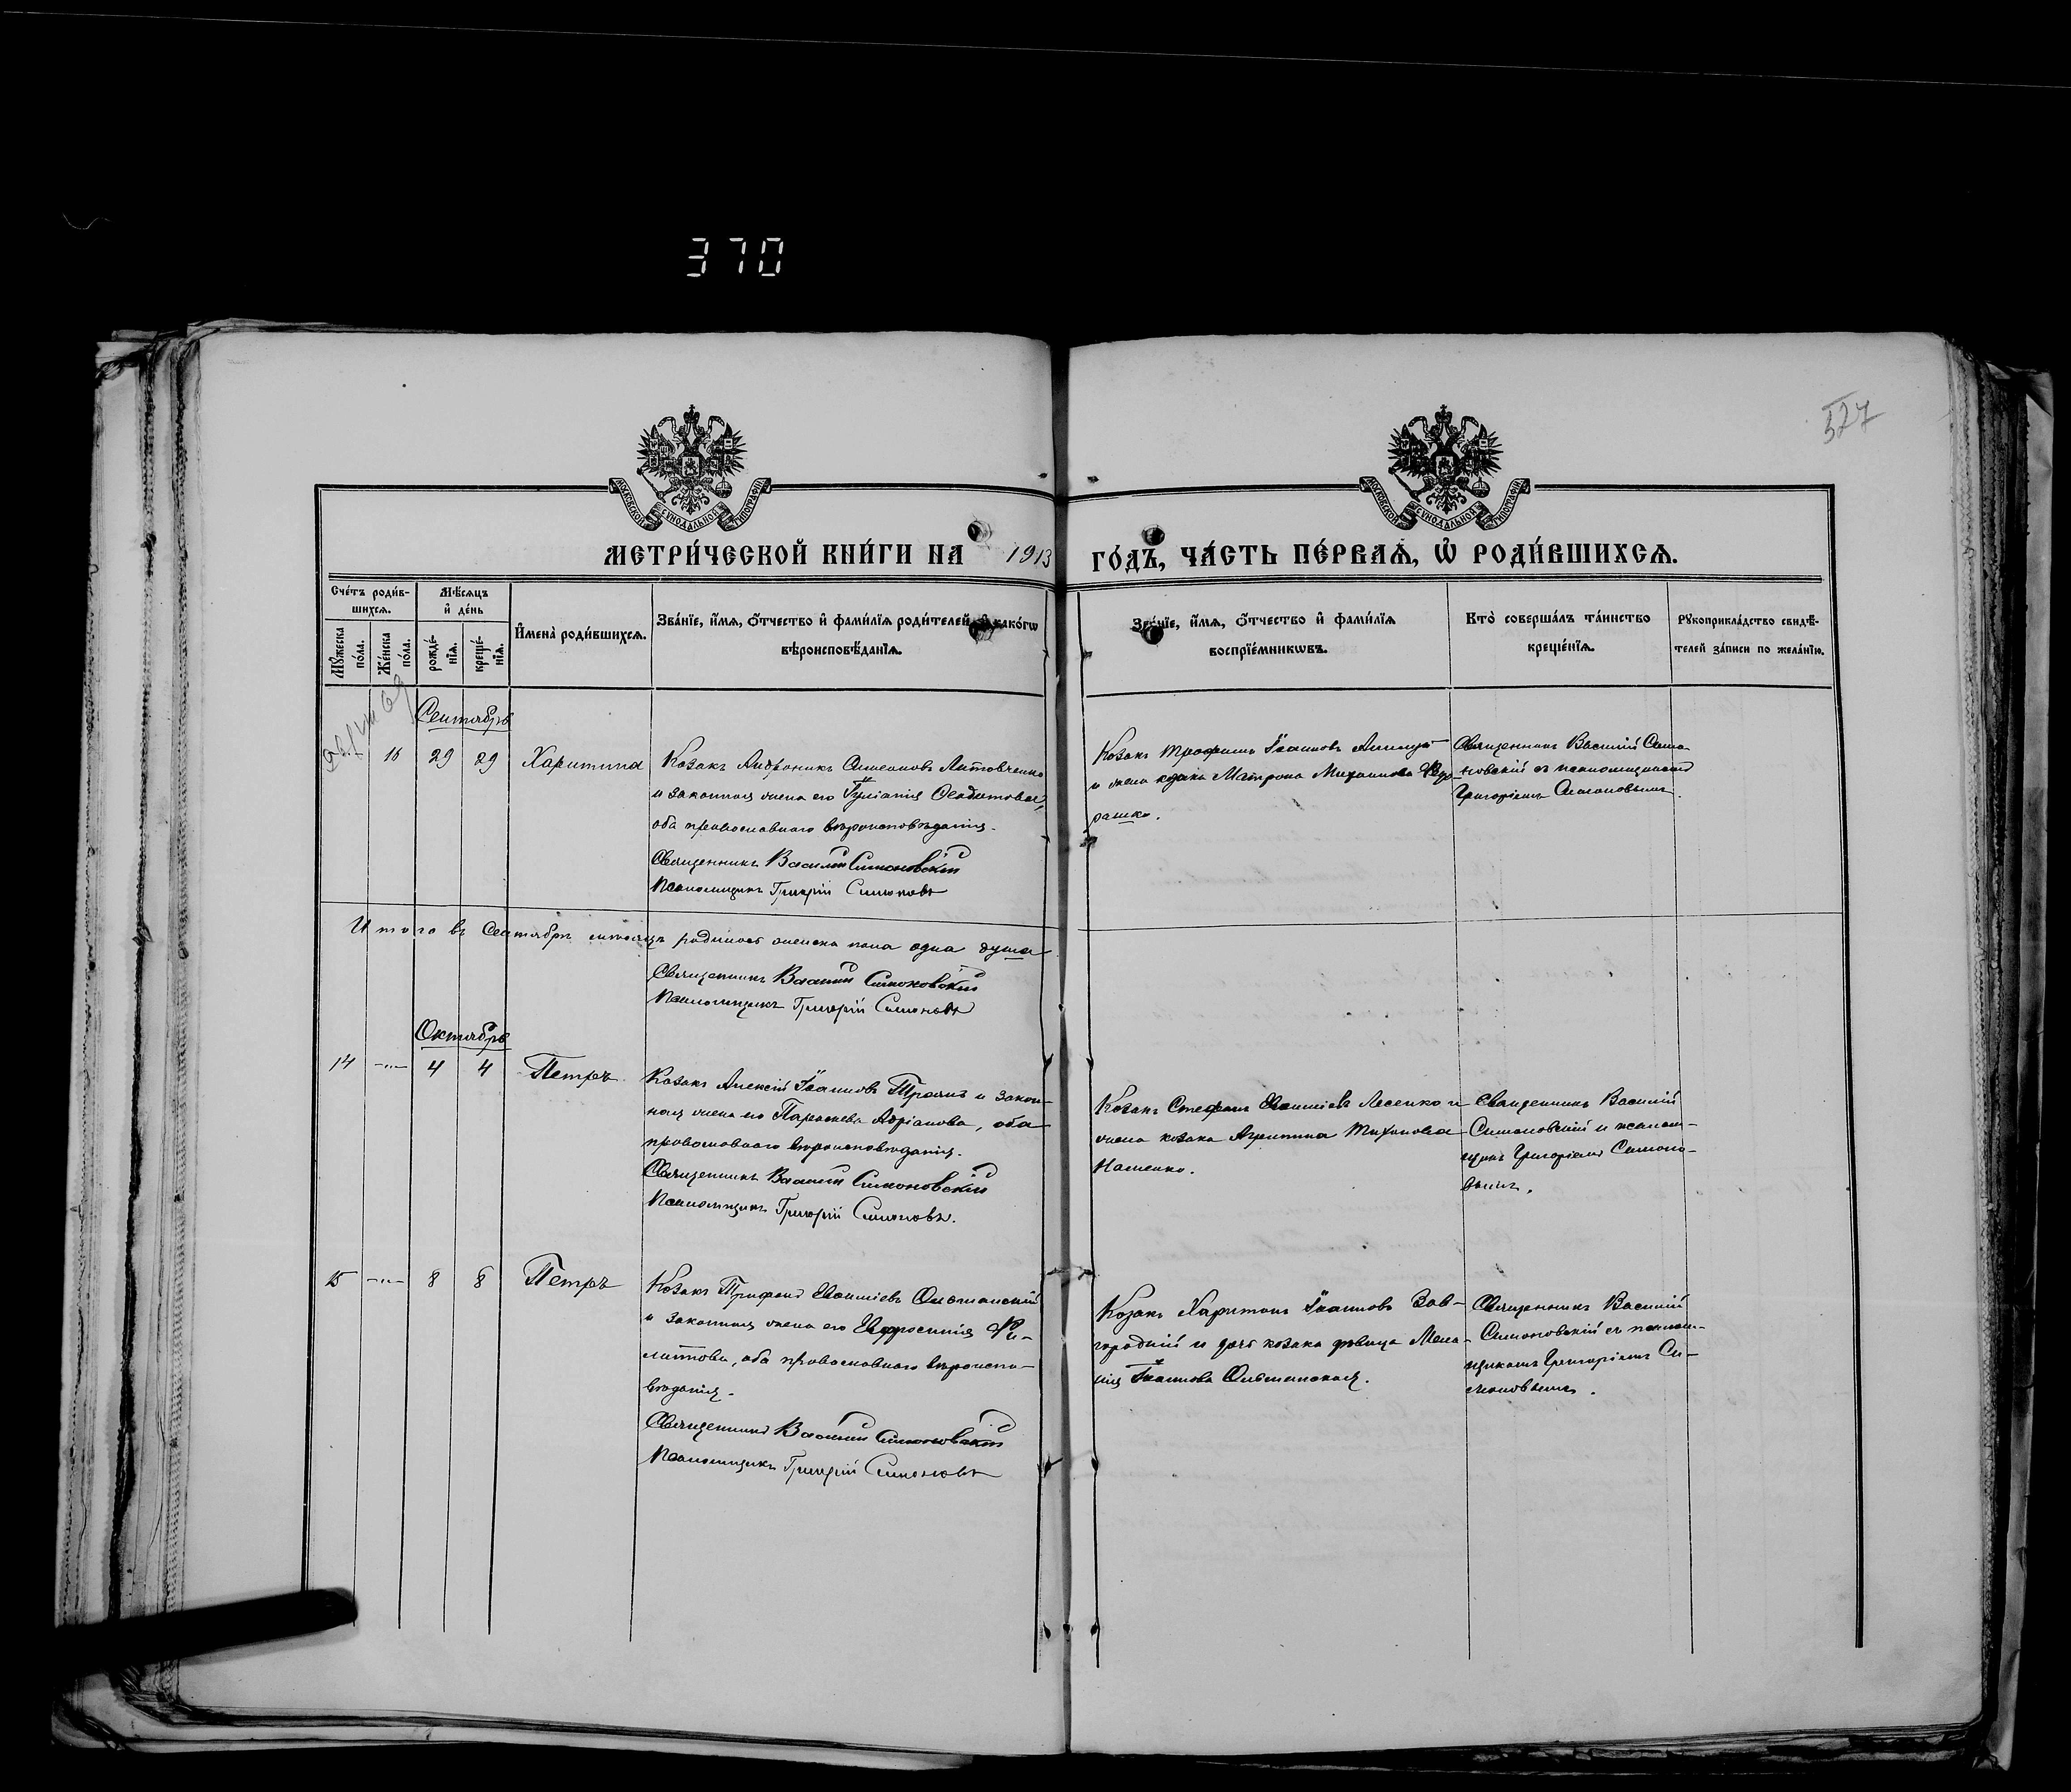 370
327
МОСКОВСКОЙ СѴНОДАЛЬНОЙ ТИПОГРАФІИ
МОСКОВСКОЙ СѴНОДАЛЬНОЙ ТИПОГРАФІИ
МЕТРИ́ЧЕСКОЙ КНИ́ГИ НА 1913 ГО́ДЪ, ЧА́СТЬ ПЕ́РВАѦ, Ѡ҆ РОДИ́ВШИХСѦ.
Сче́тъ роди́в-
шихсѧ.
Мꙋ́жеска по́ла.
Же́нска по́ла.
Мѣ́сѧцъ
и҆ де́нь
рожде́-нїѧ.
креще́-нїѧ.
И҆мена̀ роди́вшихсѧ.
Зва́нїе, и҆́мѧ, ѻ҆́тчество и҆ фами́лїѧ роди́телей, и҆ како́гѡ
вѣроисповѣ́данїѧ.
Зва́нїе, и҆́мѧ, ѻ҆́тчество и҆ фами́лїѧ
воспрїе́мникѡвъ.
Кто̀ соверша́лъ та́инство
креще́нїѧ.
Рꙋкоприкла́дство свидѣ́-
телей за́писи по жела́нїю.
Сентябрь
16 29 29 Харитина
Козакъ Андроникъ Симеоновъ Литовченко
и законная жена его Іуліанія
оба православнаго вѣроисповѣданія.
Священникъ Василій Симоновскій
Псаломщикъ Григорій Симоновъ
Козакъ Трофимъ Іоанновъ
и жена козака Матрона Михаилова
рашко.
Священникъ Василій Симо-
новскій съ псаломщикомъ
Григоріемъ Симоновымъ.
Итого въ Сентябрѣ мѣсяцѣ родилось женска пола одна душа
Священникъ Василій Симоновскій
Псаломщикъ Григорій Симоновъ
Октябрь
14 -"- 4 4 Петръ
Козакъ Алексій Іоанновъ и закон-
ная жена его Параскева Адріанова, оба
православнаго вѣроисповѣданія.
Священникъ Василій Симоновскій
Псаломщикъ Григорій Симоновъ.
Козакъ Стефанъ Евѳиміевъ Лесенко и
жена козака Агрипина Тихонова
Священникъ Василій
Симоновскій и псалом-
щикъ Григоріемъ Симоно-
вымъ.
15 -"- 8 8 Петръ
Козакъ Трифонъ Евѳиміевъ Ольшанскій
и законная жена его Евфросинія Фи-
липпова, оба православнаго вѣроиспо-
вѣданія.
Священникъ Василій Симоновскій
Псаломщикъ Григорій Симоновъ
Козакъ Харитонъ Іоанновъ Зав-
городній и дочь козака дѣвица Мела-
нія Іоаннова Ольшанская.
Священникъ Василій
Симоновскій съ псалом-
щикомъ Григоріемъ Си-
моновымъ.